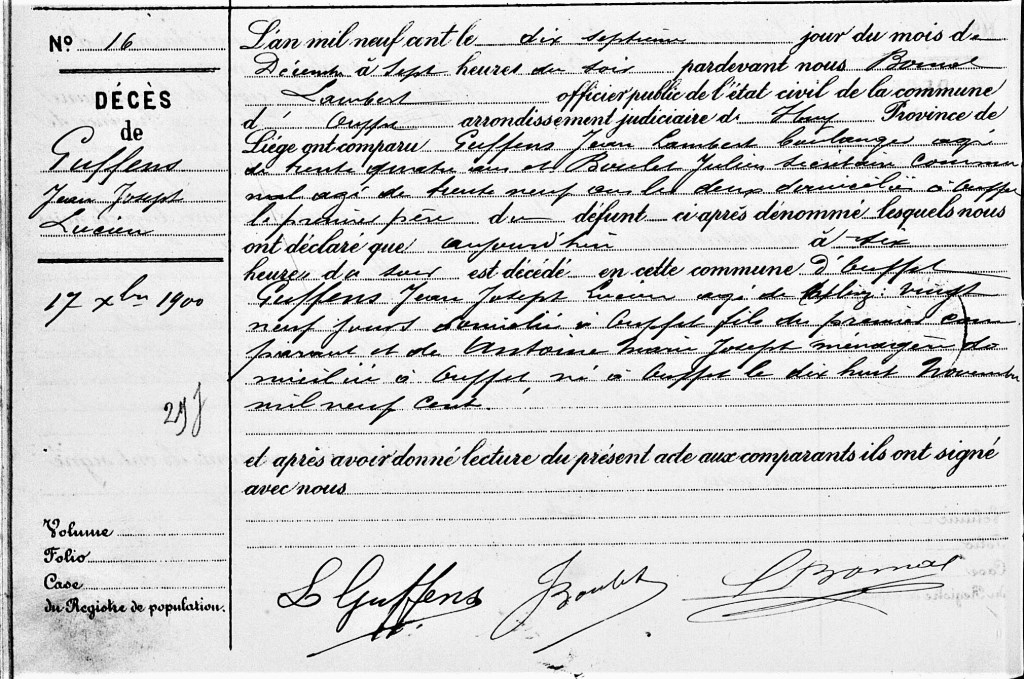 Nº 16
DÉCÈS
de
Guffens
Jean Joseph
Lucien
17 xbre 1900
29 j
Volume
Folio
Case
du Registre de population.
L'an mil neuf cent le dix septième jour du mois de
Décembre à sept heures du soir pardevant nous Bomal
Lambert officier public de l'état civil de la commune
d' Ouffet arrondissement judiciaire de Huy Province de
Liége ont comparu Guffens Jean Lambert boulanger agé
de trente quatre ans et Boulet Julien secrétaire commu
nal agé de trente neuf ans les deux domiciliés à Ouffet
le premier père du défunt ci après dénommé lesquels nous
ont déclaré que aujourd'hui à six
heures du soir est décédé en cette commune d'Ouffet
Guffens Jean Joseph Lucien agé de vingt
neuf jours domicilié à Ouffet fils du premier com
parant et de Antoine Marie Joseph ménagère do
miciliée à Ouffet, né à Ouffet le dix huit Novembre
mil neuf cent.
et après avoir donné lecture du présent acte aux comparants ils ont signé
avec nous
L Guffens JBoulet L Bomal